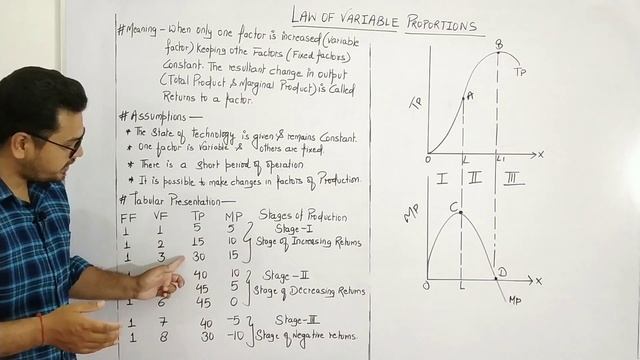 LAW OF VARIABLE PROPORTIONS
# Meaning - When only one factor is increased (variable
factor) Keeping othe Factors (Fixed factors)
Constant. The resultant change in output
(Total Product & Marginal Product) is Called
Returns to a factor.
# Assumptions -
* The State of technology is given & remains Constant.
* One factor is variable & others are fixed.
* There is a Short period of operation
* It is possible to make changes in factors of Production.
# Tabular Presentation -
FF VF TP MP Stages of Production
1 1 5 5 Stage-I
1 2 15 10 Stage of Increasing Returns
1 3 30 15
40 10 Stage-II
45 5 Stage of Decreasing Returns
1 6 45 0
1 7 40 -5 Stage-III
1 8 30 -10 Stage of Negative returns.
TP
A
B
TP
O L L1 X
I II III
MP
C
D
O L X
MP